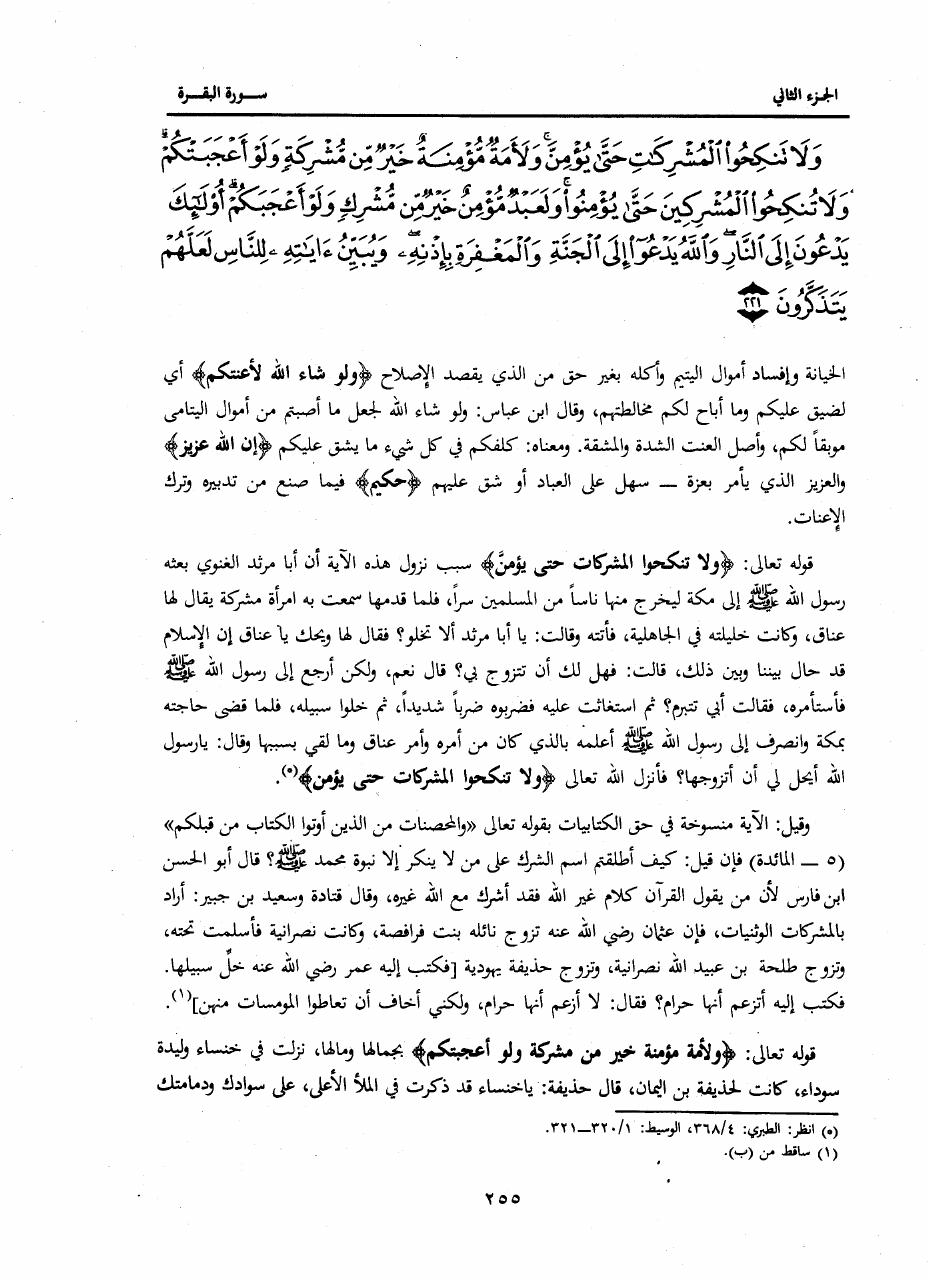 الجزء الثاني
سورة البقرة
وَلَا تَنكِحُوا۟ ٱلْمُشْرِكَٰتِ حَتَّىٰ يُؤْمِنَّ ۚ وَلَأَمَةٌ مُّؤْمِنَةٌ خَيْرٌ مِّن مُّشْرِكَةٍ وَلَوْ أَعْجَبَتْكُمْ ۗ
وَلَا تُنكِحُوا۟ ٱلْمُشْرِكِينَ حَتَّىٰ يُؤْمِنُوا۟ ۚ وَلَعَبْدٌ مُّؤْمِنٌ خَيْرٌ مِّن مُّشْرِكٍ وَلَوْ أَعْجَبَكُمْ ۗ أُو۟لَٰٓئِكَ
يَدْعُونَ إِلَى ٱلنَّارِ ۖ وَٱللَّهُ يَدْعُوٓا۟ إِلَى ٱلْجَنَّةِ وَٱلْمَغْفِرَةِ بِإِذْنِهِۦ ۖ وَيُبَيِّنُ ءَايَٰتِهِۦ لِلنَّاسِ لَعَلَّهُمْ
يَتَذَكَّرُونَ ٢٢١
الخيانة وإفساد أموال اليتيم وأكله بغير حق من الذي يقصد الإصلاح ﴿ولو شاء الله لأعنتكم﴾ أي
لضيق عليكم وما أباح لكم مخالطتهم، وقال ابن عباس: ولو شاء الله لجعل ما أصبتم من أموال اليتامى
موبقاً لكم، وأصل العنت الشدة والمشقة. ومعناه: كلفكم في كل شيء ما يشق عليكم ﴿إن الله عزيز﴾
والعزيز الذي يأمر بعزة ــ سهل على العباد أو شق عليهم ﴿حكيم﴾ فيما صنع من تدبيره وترك
الإعنات.
قوله تعالى: ﴿ولا تنكحوا المشركات حتى يؤمنَّ﴾ سبب نزول هذه الآية أن أبا مرثد الغنوي بعثه
رسول الله ﷺ إلى مكة ليخرج منها ناساً من المسلمين سراً، فلما قدمها سمعت به امرأة مشركة يقال لها
عناق، وكانت خليلته في الجاهلية، فأتته وقالت: يا أبا مرثد ألا تخلو؟ فقال لها ويحك يا عناق إن الإسلام
قد حال بيننا وبين ذلك، قالت: فهل لك أن تتزوج بي؟ قال نعم، ولكن أرجع إلى رسول الله ﷺ
فأستأمره، فقالت أبي تتبرم؟ ثم استغاثت عليه فضربوه ضرباً شديداً، ثم خلوا سبيله، فلما قضى حاجته
بمكة وانصرف إلى رسول الله ﷺ أعلمه بالذي كان من أمره وأمر عناق وما لقي بسببها وقال: يارسول
الله أيحل لي أن أتزوجها؟ فأنزل الله تعالى ﴿ولا تنكحوا المشركات حتى يؤمن﴾(٥).
وقيل: الآية منسوخة في حق الكتابيات بقوله تعالى «والمحصنات من الذين أوتوا الكتاب من قبلكم»
(٥ ــ المائدة) فإن قيل: كيف أطلقتم اسم الشرك على من لا ينكر إلا نبوة محمد ﷺ؟ قال أبو الحسن
ابن فارس لأن من يقول القرآن كلام غير الله فقد أشرك مع الله غيره، وقال قتادة وسعيد بن جبير: أراد
بالمشركات الوثنيات، فإن عثمان رضي الله عنه تزوج نائله بنت فرافصة، وكانت نصرانية فأسلمت تحته،
وتزوج طلحة بن عبيد الله نصرانية، وتزوج حذيفة يهودية [فكتب إليه عمر رضي الله عنه خلِّ سبيلها.
فكتب إليه أتزعم أنها حرام؟ فقال: لا أزعم أنها حرام، ولكني أخاف أن تعاطوا المومسات منهن](١).
قوله تعالى: ﴿ولأمة مؤمنة خير من مشركة ولو أعجبتكم﴾ بجمالها ومالها، نزلت في خنساء وليدة
سوداء، كانت لحذيفة بن اليمان، قال حذيفة: ياخنساء قد ذكرت في الملأ الأعلى، على سوادك ودمامتك
(٥) انظر: الطبري: ٣٦٨/٤، الوسيط: ٣٢٠/١ــ٣٢١.
(١) ساقط من (ب).
٢٥٥